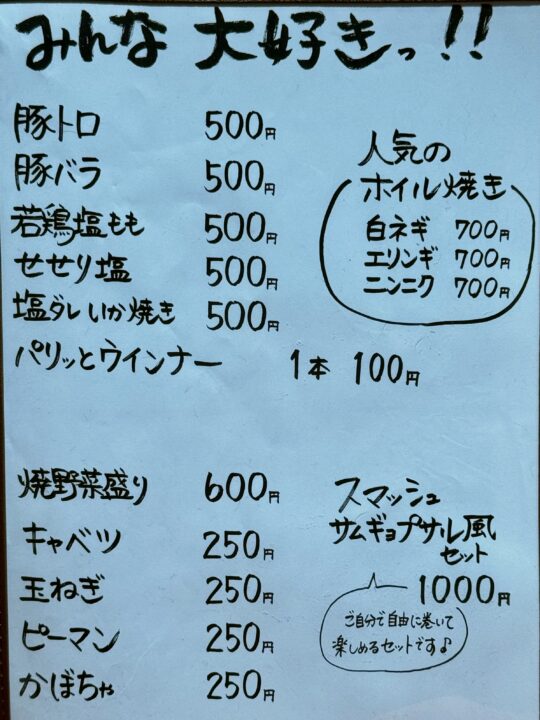 みんな 大好きっ!!
豚トロ 500円
豚バラ 500円
若鶏塩もも 500円
せせり塩 500円
塩ダレいか焼き 500円
パリッとウインナー 1本 100円
人気の
ホイル焼き
白ネギ 700円
エリンギ 700円
ニンニク 700円
焼野菜盛り 600円
キャベツ 250円
玉ねぎ 250円
ピーマン 250円
かぼちゃ 250円
スマッシュ
サムギョプサル風
セット
1000円
ご自分で自由に巻いて
楽しめるセットです♪